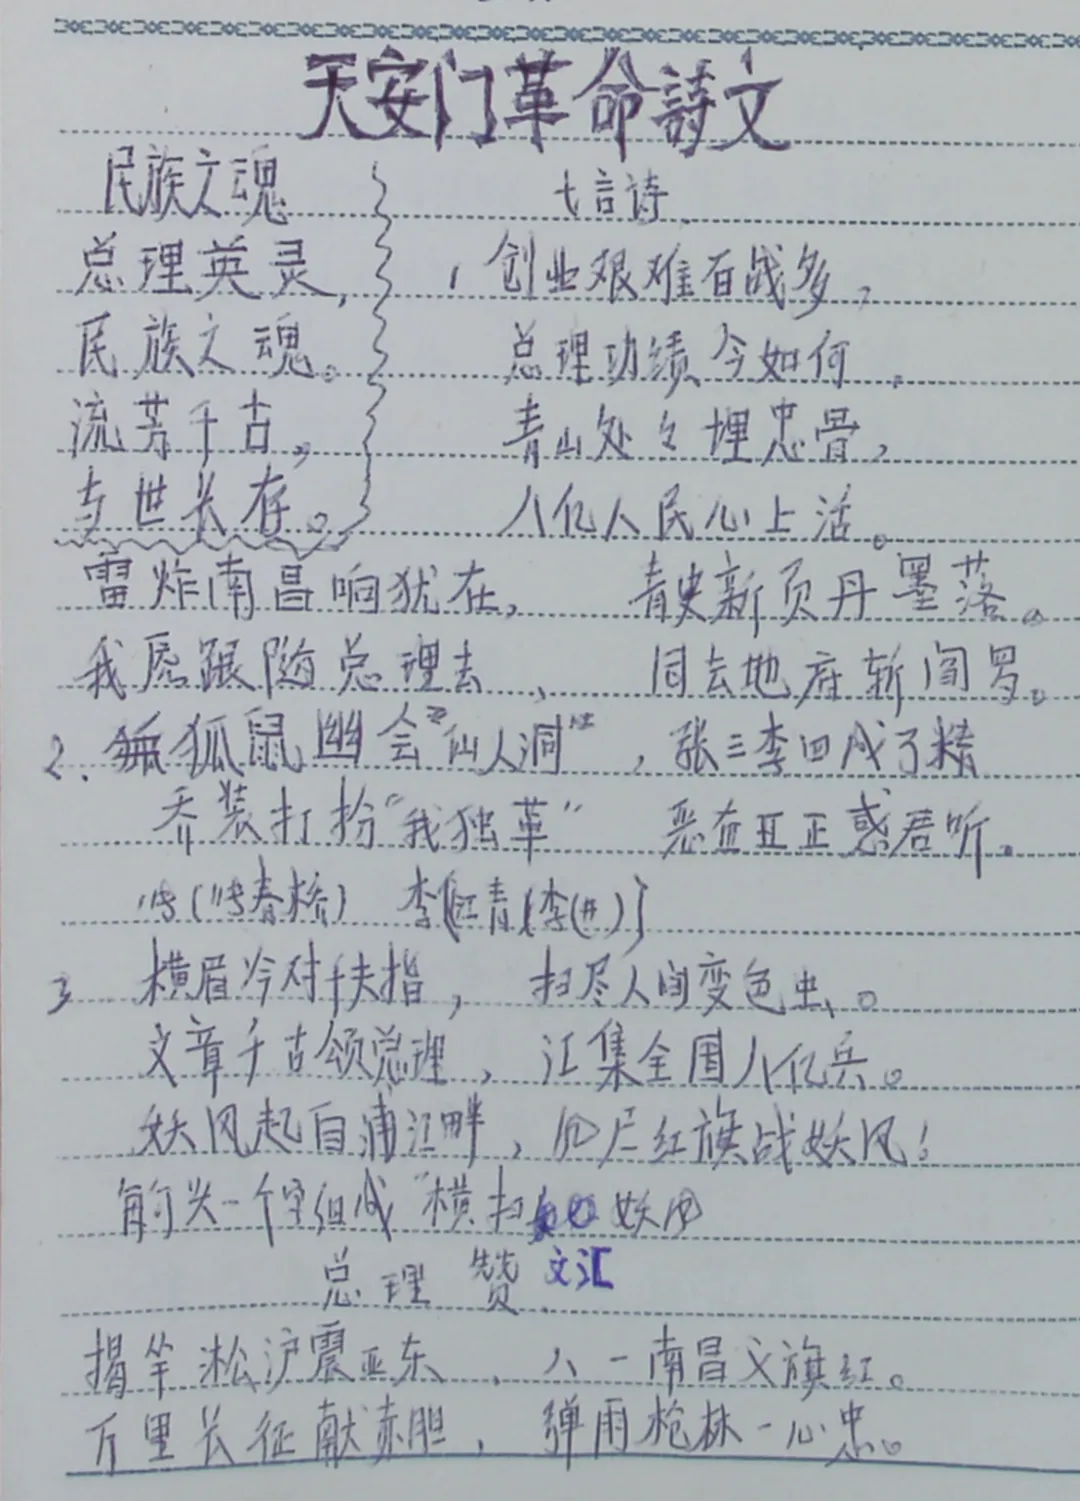 天安门革命詩文
民族之魂
总理英灵,
民族之魂。
流芳千古,
与世长存。
七言诗
1 创业艰难百战多,
总理功绩今如何.
青山处々埋忠骨,
八亿人民心上活。
雷炸南昌响犹在, 青史新页丹墨落。
我愿跟随总理去、 同去地府斩阎罗。
2. 狐鼠幽会"仙人洞", 张三李四成了精
乔装打扮"我独革" 恶血丑正惑君听。
张(张春桥) 李{江青(李(井)}
3 横眉冷对千夫指, 扫尽人间变色虫。
文章千古颂总理, 汇集全国八亿兵。
妖风起自浦江畔, 红旗战妖风!
每句头一个字组成"横扫 妖风
文汇
总理赞.
揭竿淞沪震亚东、 八一南昌义旗红。
万里长征献赤胆, 弹雨枪林一心忠。